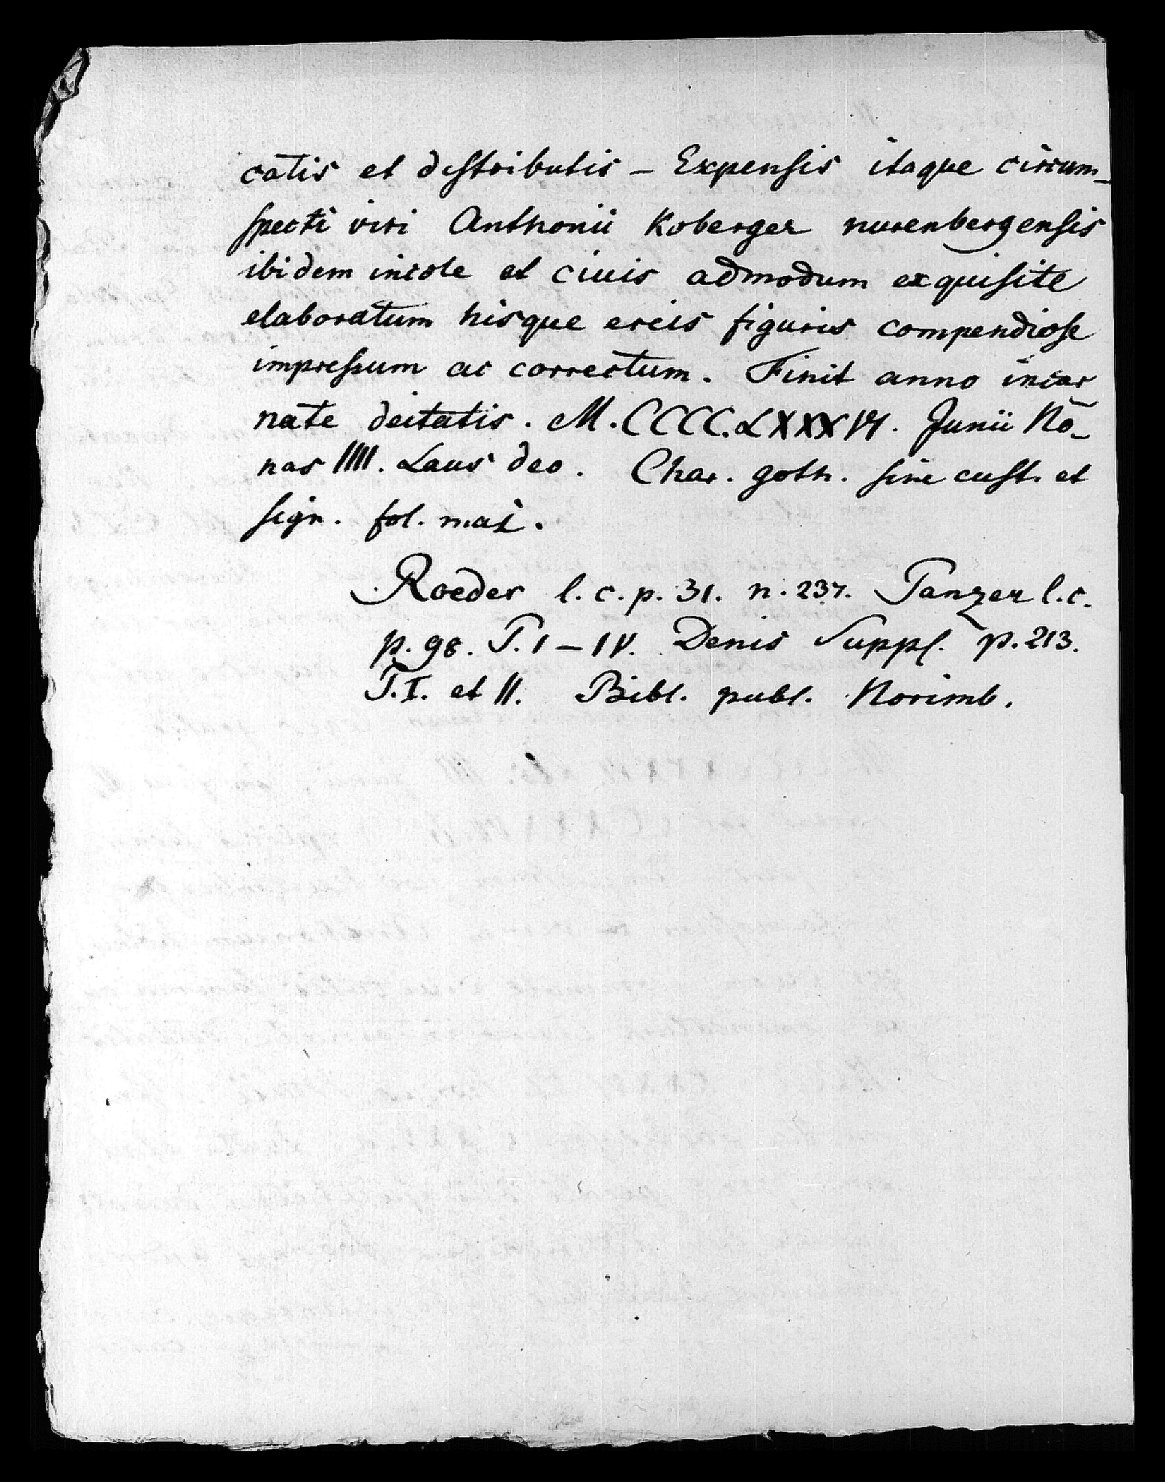 catis et distributis – Expensis itaque circum-
specti viri Anthonii Koberger nurenbergensis
ibidem incole et ciuis admodum exquisite
elaboratum hisque ereis figuris compendiose
impressum ac correctum. Finit anno incar
nate deitatis. M.CCCC.LXXXVI. Junii No-
nas IIII. Laus deo. Char. goth. sine cust. et
sign. fol. maj.
Roeder l. c. p. 31. n. 237. Panzer l. c.
p. 98. T. I – IV. Denis Suppl. p. 213.
T. I. et II. Bibl. publ. Norimb.